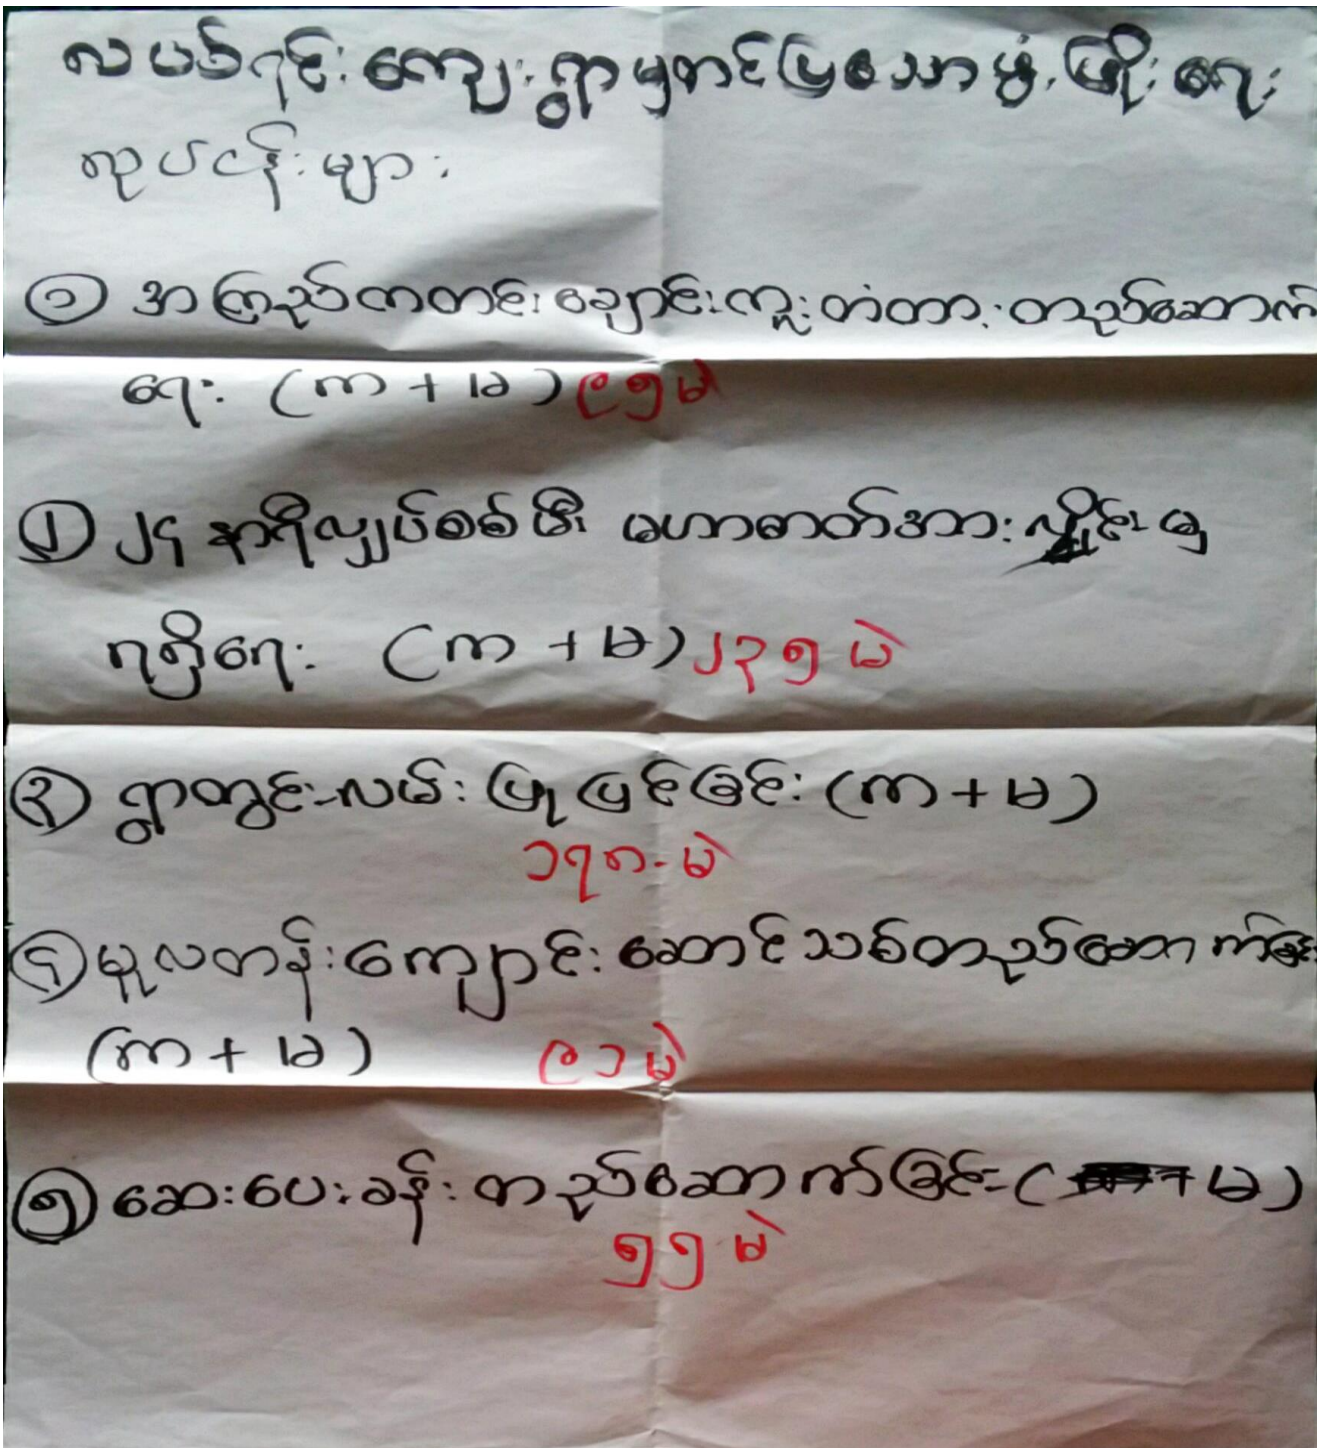 လပစ်ရင်းကျေးရွာမှတင်ပြသောဖွံ့ဖြိုးရေး
လုပ်ငန်းများ
၁ အကြည်ကတင်းချောင်းကူးတံတားတည်ဆောက်
ရေး (ကာ + မ) ၉၅ မဲ
၂ ၂၄ နာရီလျှပ်စစ်မီး မဟာဓာတ်အားလှိုင်းမှ
ရရှိရေး (ကာ + မ) ၂၃၅ မဲ
၃ ရွာတွင်းလမ်းပြုပြင်ခြင်း (ကာ + မ)
၁၇၈ မဲ
၄ မူလတန်းကျောင်းဆောင်သစ်တည်ဆောက်ခြင်း
(ကာ + မ) ၉၁ မဲ
၅ ဆေးပေးခန်းတည်ဆောက်ခြင်း ( + မ)
၅၅ မဲ